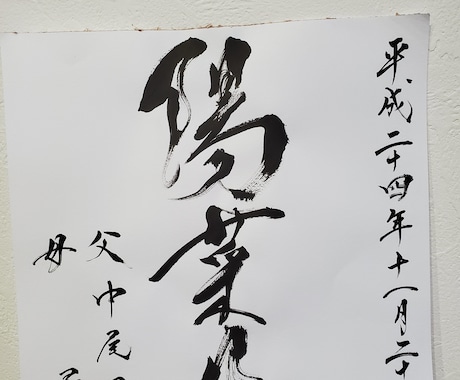 平成二十四年十一月二十
陽菜
父 中尾
母